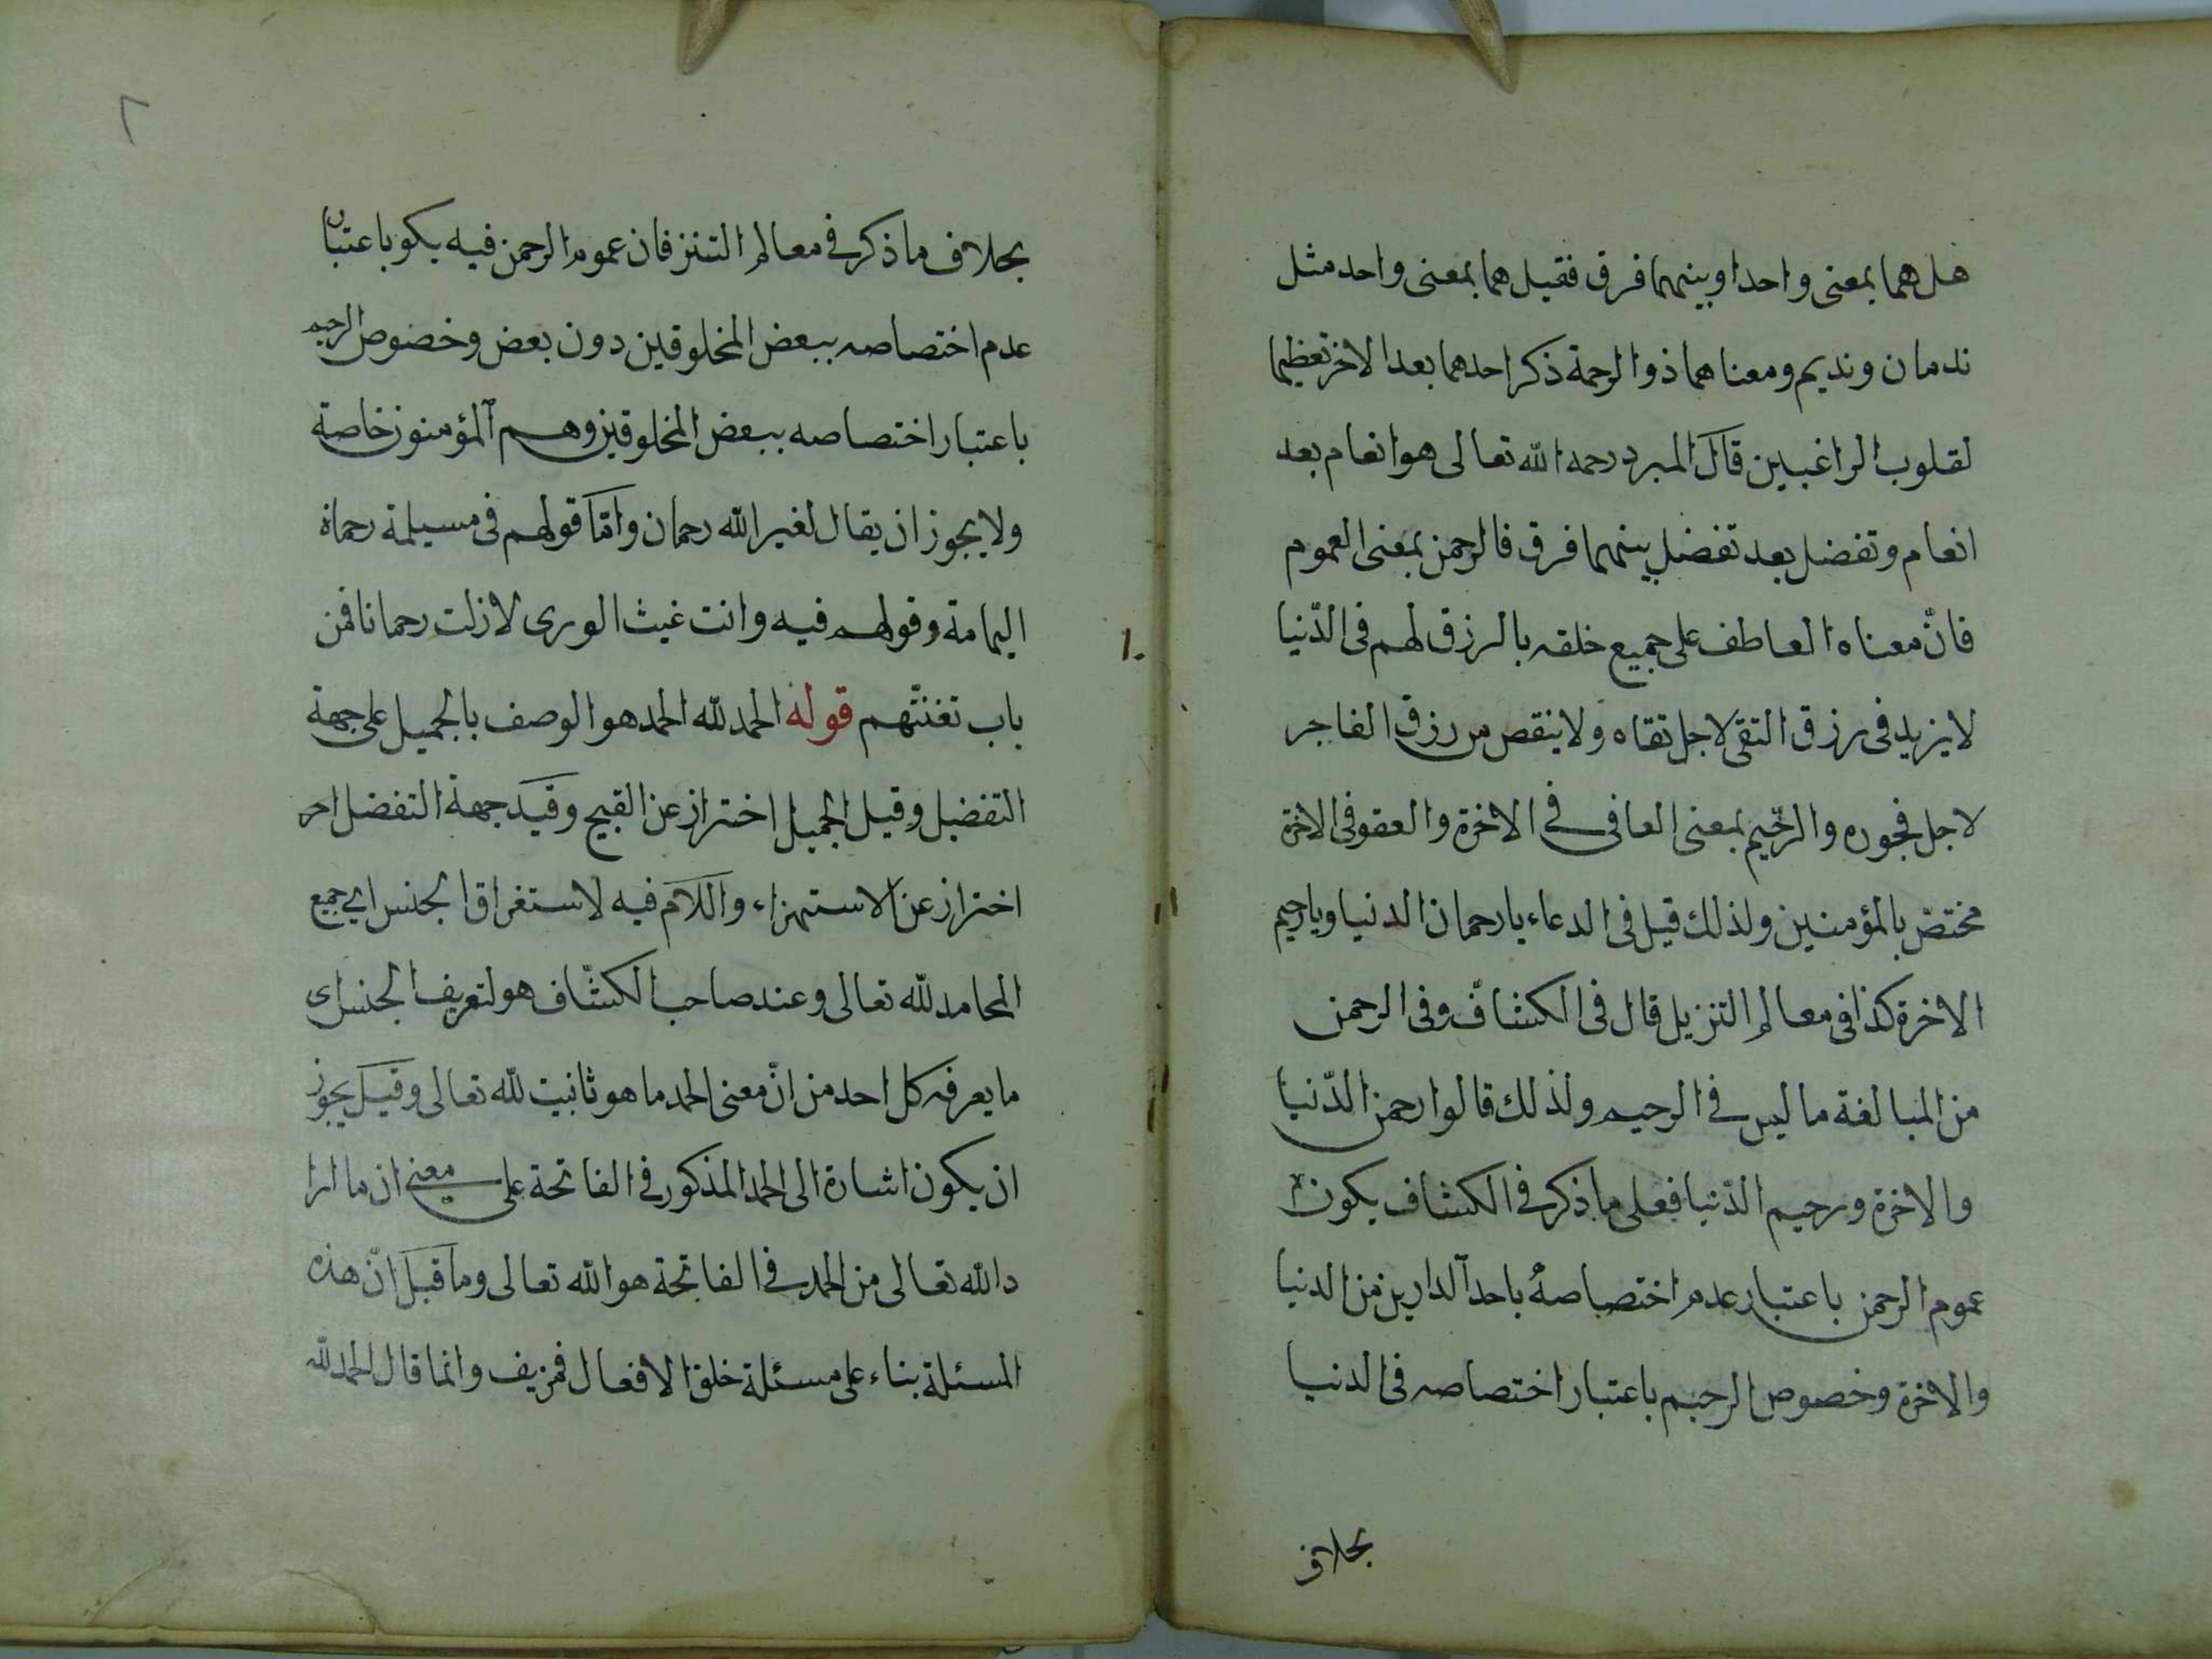 هل هما بمعنى واحد او بينهما فرق فقيل هما بمعنى واحد مثل
ندمان ونديم ومعناهما ذو الرحمة ذكر احدهما بعد الاخر تعظيما
لقلوب الراغبين قال المبرد رحمه الله تعالى هو انعام بعد
انعام وتفضل بعد تفضل بينهما فرق فالرحمن بمعنى العموم
فانّ معناه العاطف على جميع خلقه بالرزق لهم فى الدّنيا
لا يزيد فى رزق التقى لاجل تقاه ولا ينقص من رزق الفاجر
لاجل فجوره والرّحيم بمعنى العافى فى الاخرة والعفو فى الاخرة
مختصّ بالمؤمنين ولذلك قيل فى الدعاء يا رحمان الدنيا ويا رحيم
الاخرة كذا فى معالم التنزيل قال فى الكشاف وفى الرحمن
من المبالغة ما ليس فى الرحيم ولذلك قالوا رحمن الدّنيا
والاخرة ورحيم الدّنيا فعلى ما ذكر فى الكشاف يكون
عموم الرحمن باعتبار عدم اختصاصه باحد الدارين من الدنيا
والاخرة وخصوص الرحيم باعتبار اختصاصه فى الدنيا
بخلاف
٢
بخلاف ما ذكر فى معالم التنز فان عموم الرحمن فيه يكو باعتبار
عدم اختصاصه ببعض المخلوقين دون بعض وخصوص الرحيم
باعتبار اختصاصه ببعض المخلوقين وهم المؤمنون خاصة
ولا يجوز ان يقال لغير الله رحمان وامّا قولهم فى مسيلمة رحمان
اليمامة وقولهم فيه وانت غيث الورى لا زلت رحمانا فمن
باب تعنتّهم قوله الحمد لله الحمد هو الوصف بالجميل على جهة
التفضيل وقيل الجميل احتراز عن القبيح وقيد جهة التفضل احر
احتراز عن الاستهزاء واللام فيه لاستغراق الجنس اى جميع
المحامد لله تعالى وعند صاحب الكشّاف هو لتعريف الجنس اى
ما يعرفه كل احد من انّ معنى الحمد ما هو ثابت لله تعالى وقيل يجوز
ان يكون اشارة الى الحمد المذكور فى الفاتحة على معنى ان ما ارا
د الله تعالى من الحمد فى الفاتحة هو الله تعالى وما قيل انّ هذه
المسئلة بناء على مسئلة خلق الافعال فمزيف وانما قال الحمد لله